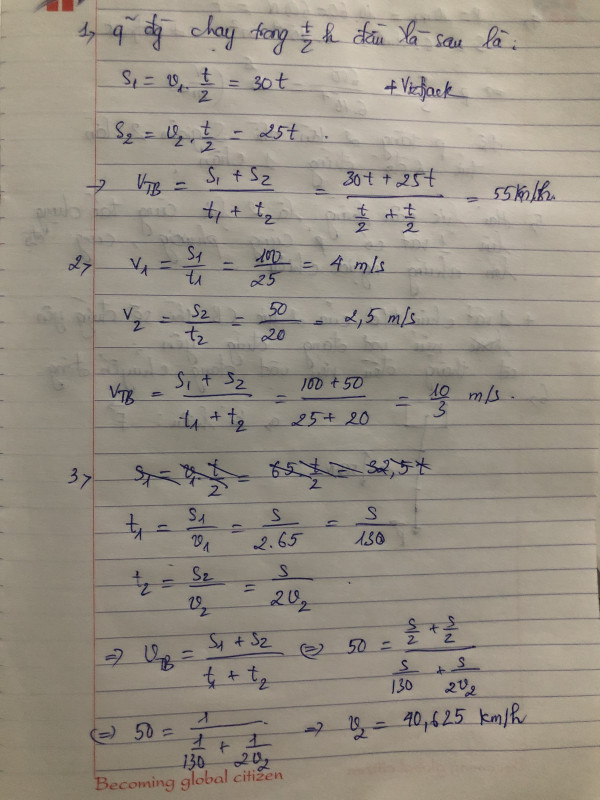 1, q~ đg chạy trong t/2 h đầu là sau là:
S₁ = v₁ . t/2 = 30t + Vietjack
S₂ = v₂ . t/2 = 25t .
→ V_TB = (S₁ + S₂)/(t₁ + t₂) = (30t + 25t)/(t/2 + t/2) = 55km/h.
2, V₁ = S₁/t₁ = 100/25 = 4 m/s
V₂ = S₂/t₂ = 50/20 = 2,5 m/s
V_TB = (S₁ + S₂)/(t₁ + t₂) = (100 + 50)/(25 + 20) = 10/3 m/s.
3, S₁ = v₁ t/2 = 65 t/2 = 32,5t
t₁ = S₁/v₁ = S/2.65 = S/130
t₂ = S₂/v₂ = S/2v₂
⇒ V_TB = (S₁ + S₂)/(t₁ + t₂) (=) 50 = (S/2 + S/2)/(S/130 + S/2v₂)
(=) 50 = 1/(1/130 + 1/2v₂) ⇒ v₂ = 40,625 km/h
Becoming global citizen